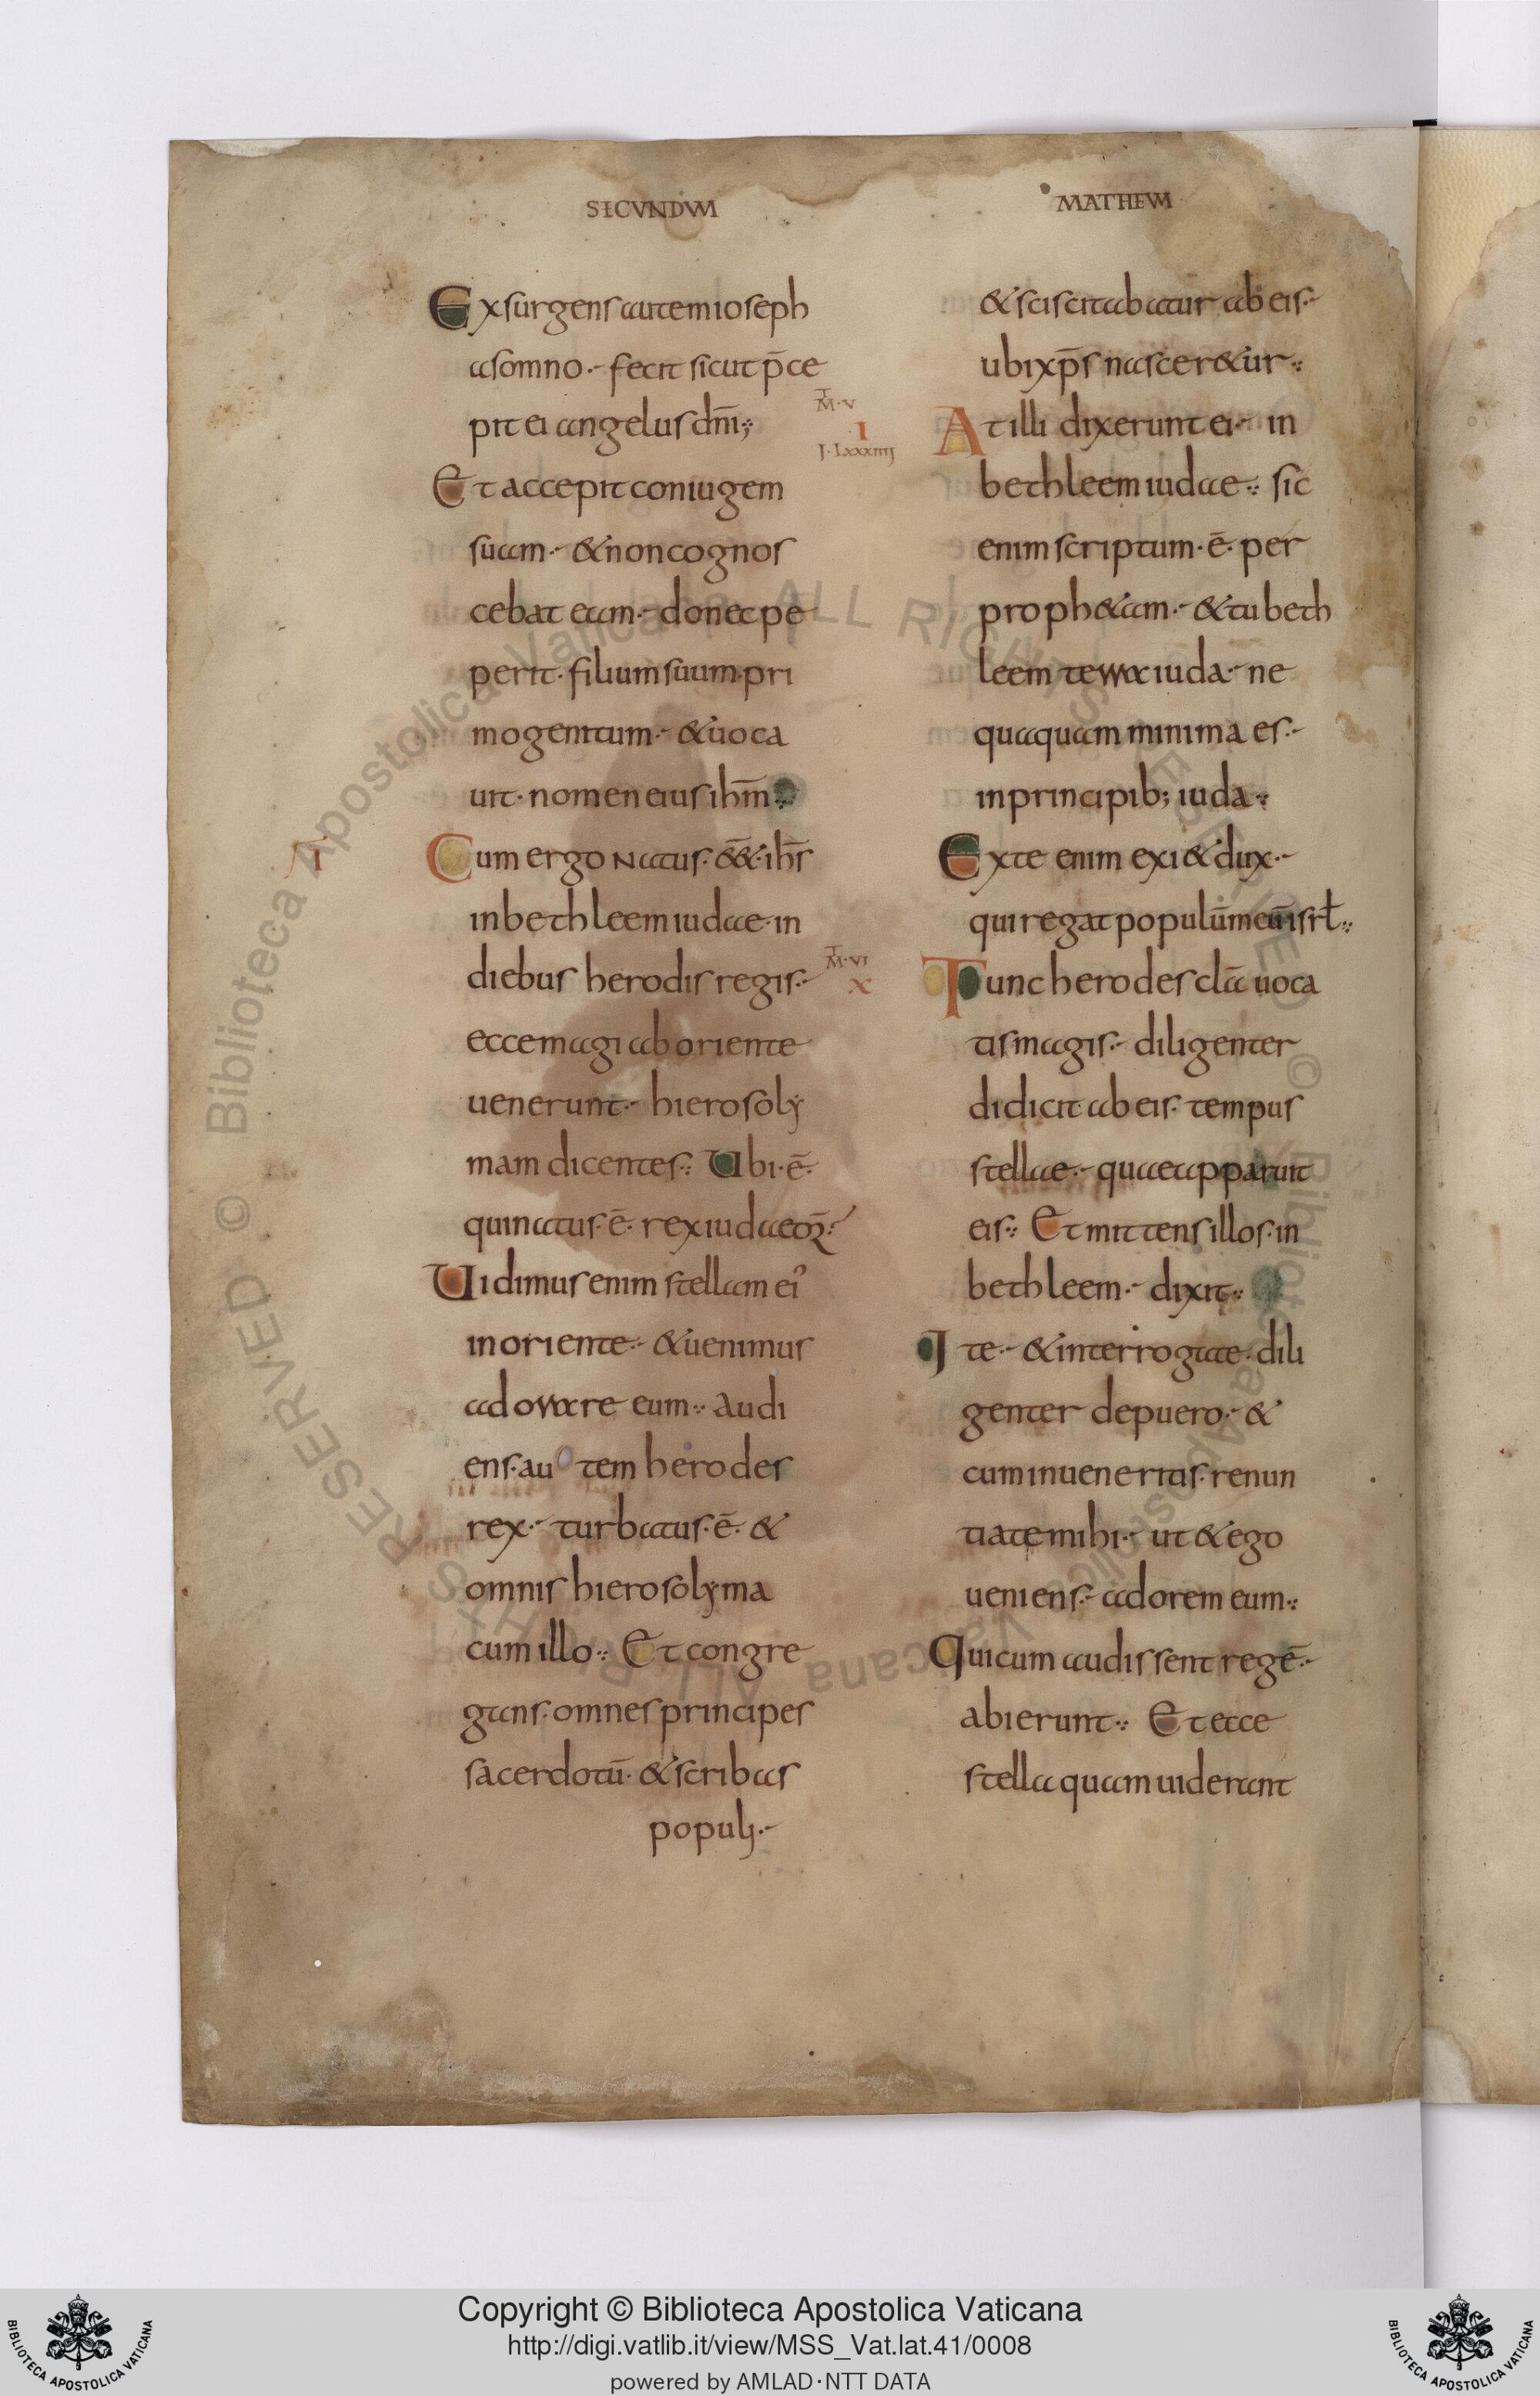 SECVNDVM
MATHEVM
Exsurgens autem ioseph
a somno·- fecit sicut p̄ce
pit ei angelus dn̄i;
Et accepit coniugem
suam·- & non cognos
cebat eam·- donec pe
perit· filium suum· pri
mogenitum·- & uoca
uit· nomen eius ihm̄·:
Cum ergo natus· ēēt· ihs̄
in bethleem iudae· in
diebus herodis regis·-
ecce magi ab oriente
uenerunt·- hierosoly
mam dicentes·: Ubi· ē·
qui natus· ē· rex iudaeoꝝ?
Uidimus enim stellam ei᾽
in oriente·- & uenimus
adorare eum·: audi
ens· autem herodes
rex·- turbatus· ē· &
omnis hierosolyma
cum illo·: Et congre
gans· omnes principes
sacerdotū· & scribas
populi·-
T
M·V
I
J·LXXXIIII
T
M·VI
X
& sciscitabatur ab eis·-
ubi xp̄s nascer&ur·:
At illi dixerunt ei·- in
bethleem iudae·: sic
enim scriptum· ē· per
proph&am·- & tu beth
leem terra iuda·- ne
quaquam minima es·-
in principib; iuda·:
Ex te enim exi& dux·-
qui regat populum̄ meum̄ isrł·:
Tunc herodes clā uoca
tis magis·- diligenter
didicit ab eis· tempus
stellae·- quae apparuit
eis·: Et mittens illos· in
bethleem·- dixit·:
Ite·- & interrogate· dili
genter de puero·- &
cum inueneritis· renun
tiate mihi·- ut & ego
ueniens·- adorem eum·:
Qui cum audissent regē·-
abierunt·: Et ecce
stella quam uiderant
© Biblioteca Apostolica Vaticana ALL RIGHTS RESERVED © Biblioteca Apostolica Vaticana ALL RIGHTS RESERVED
Copyright © Biblioteca Apostolica Vaticana
http://digi.vatlib.it/view/MSS_Vat.lat.41/0008
powered by AMLAD·NTT DATA
BIBLIOTECA APOSTOLICA VATICANA
BIBLIOTECA APOSTOLICA VATICANA